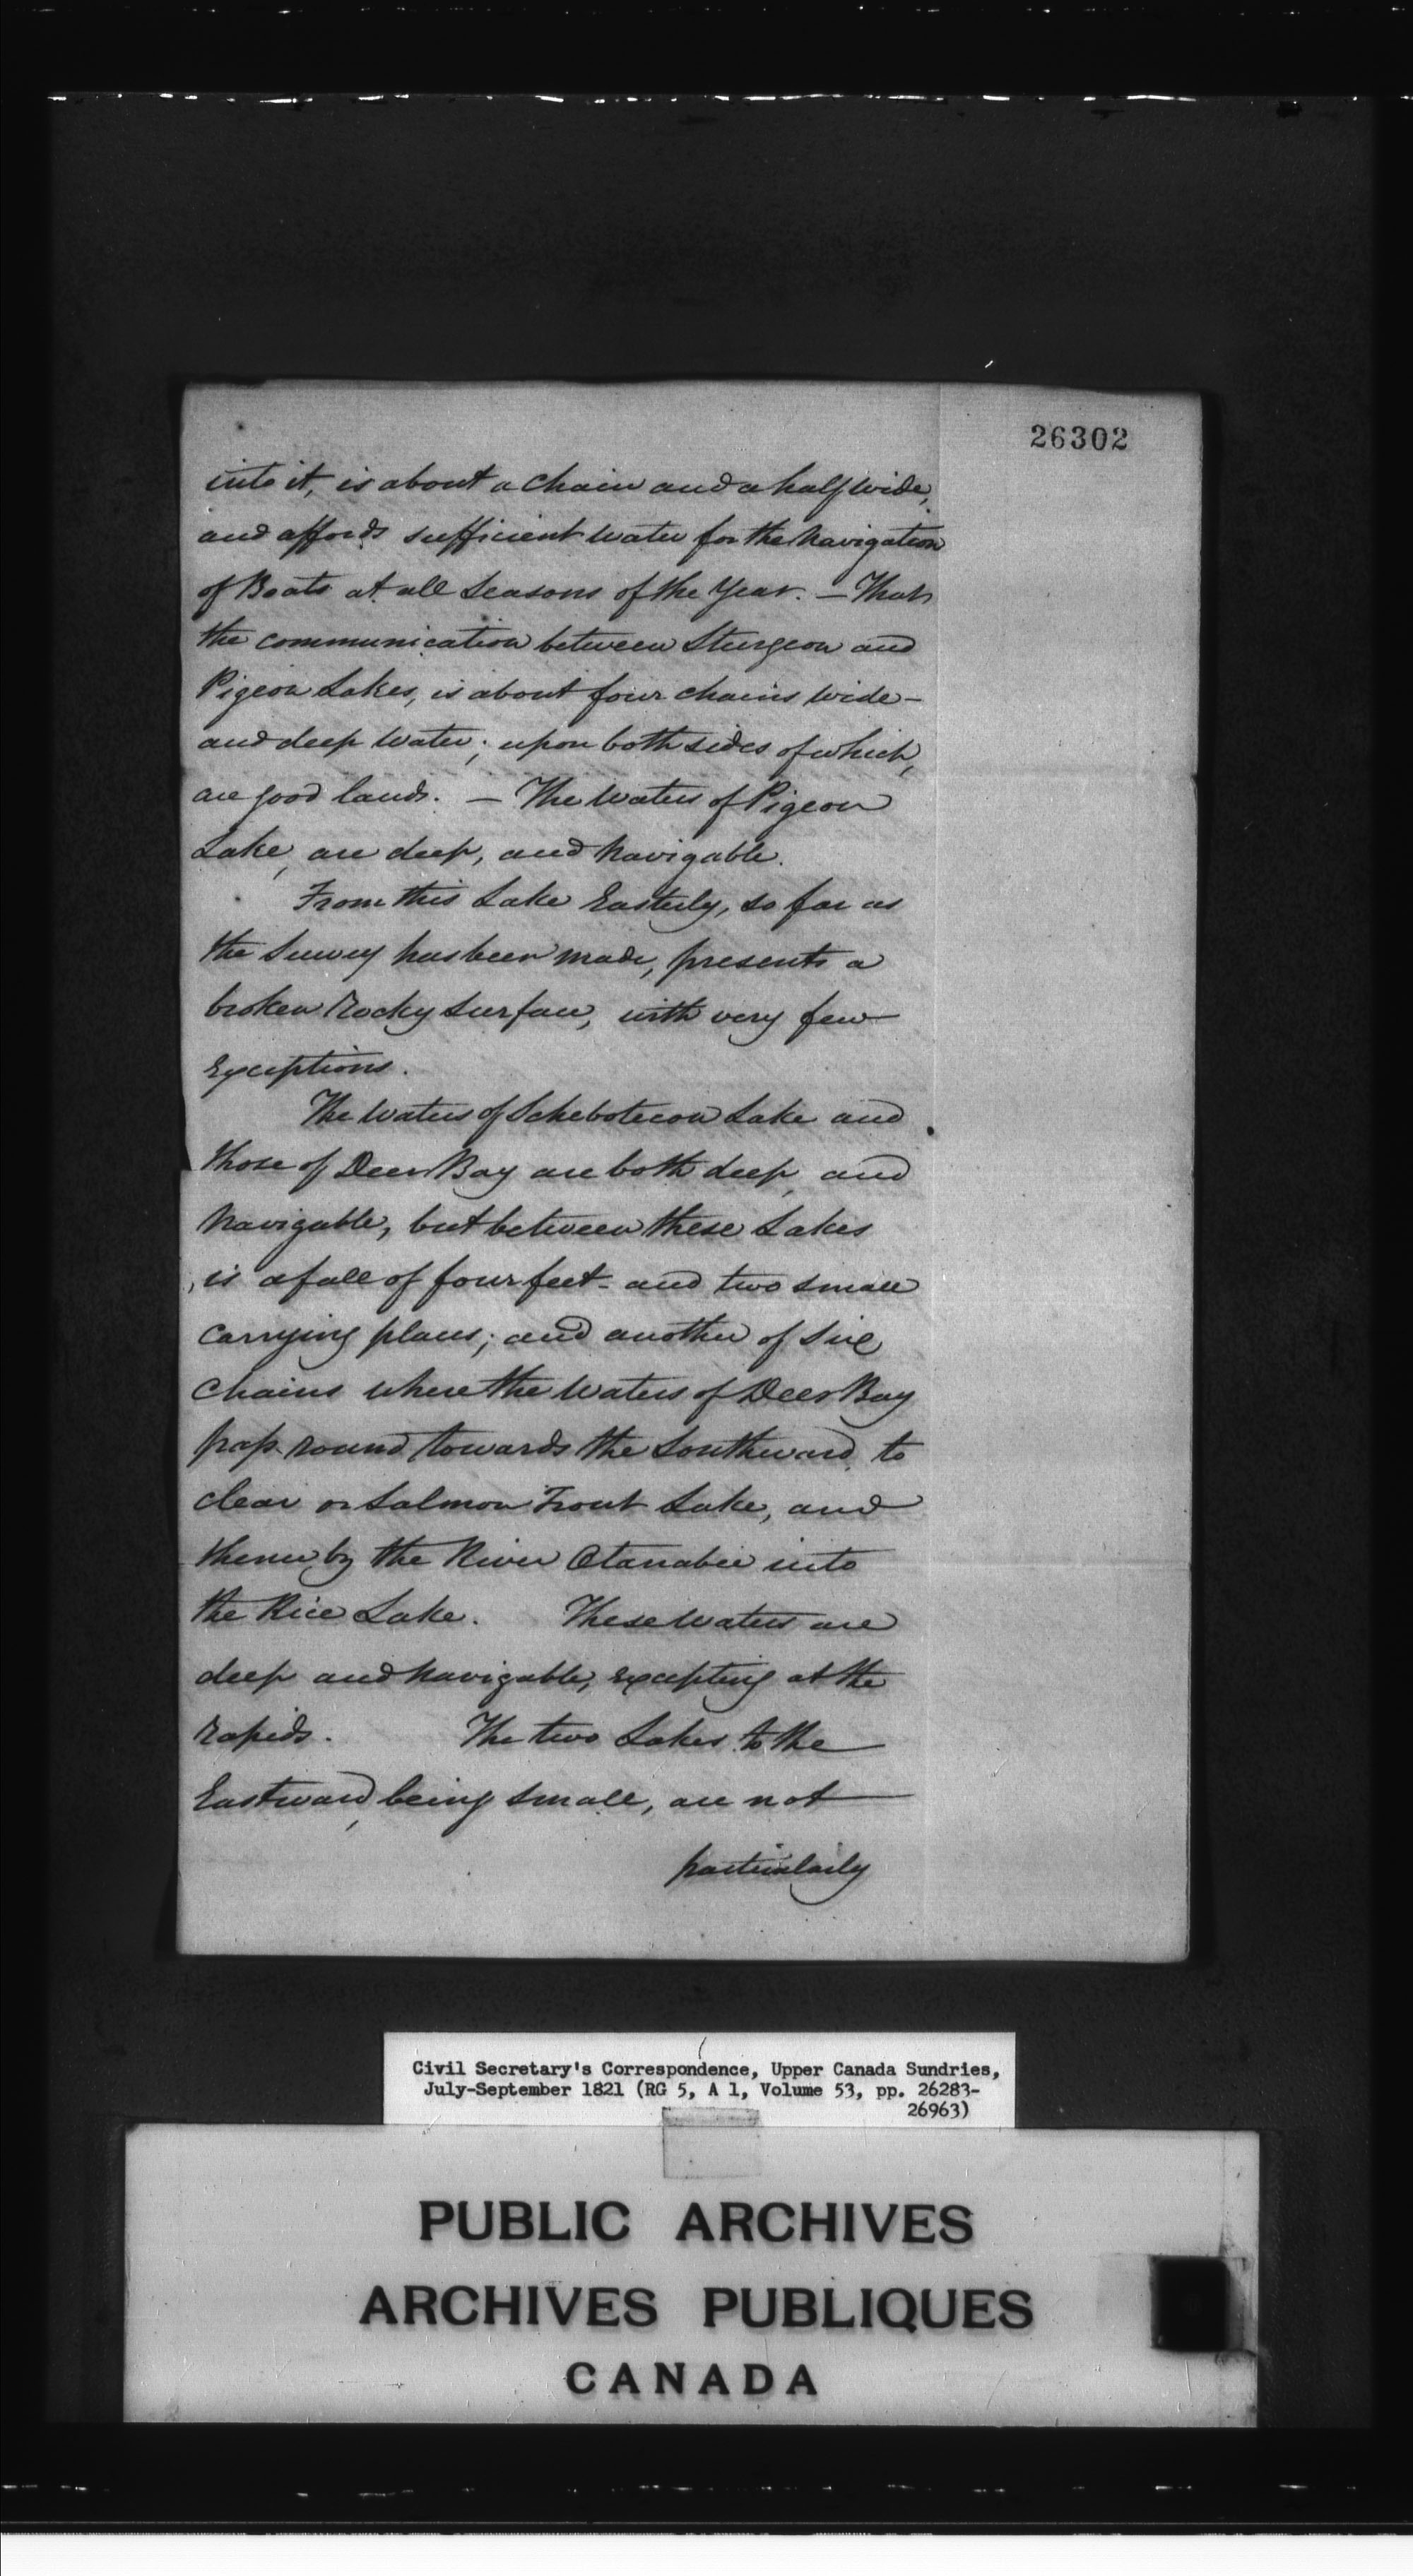 26302
into it, is about a Chain and a half wide,
and affords sufficient water for the Navigation
of Boats at all Seasons of the Year. — That
the communication between Sturgeon and
Pigeon Lakes, is about four chains wide -
and deep water; upon both sides of which,
are good lands. — The Waters of Pigeon
Lake, are deep, and Navigable.
From this Lake Easterly, so far as
the Survey has been made, presents a
broken Rocky Surface, with very few
Exceptions.
The Waters of Schebotecon Lake and
those of Deer Bay are both deep, and
Navigable, but between these Lakes
is a fall of four feet - and two small
Carrying places; and another of Six
Chains where the Waters of Deer Bay
pass round towards the Southward, to
clear or Salmon Trout Lake, and
thence by the River Otanabee into
the Rice Lake. These Waters are
deep and Navigable, Excepting at the
Rapids. The two Lakes to the
Eastward, being Small, are not
particularly
Civil Secretary's Correspondence, Upper Canada Sundries,
July-September 1821 (RG 5, A 1, Volume 53, pp. 26283-
26963)
PUBLIC ARCHIVES
ARCHIVES PUBLIQUES
CANADA